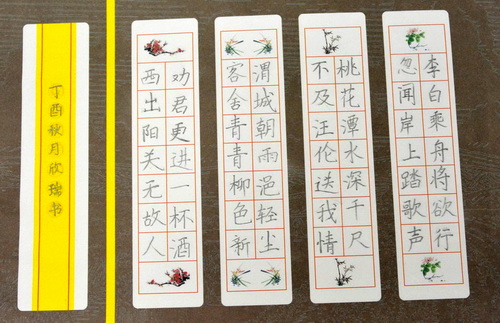 李白乘舟将欲行
忽闻岸上踏歌声
桃花潭水深千尺
不及汪伦送我情
渭城朝雨浥轻尘
客舍青青柳色新
劝君更进一杯酒
西出阳关无故人
丁酉秋月欣瑞书